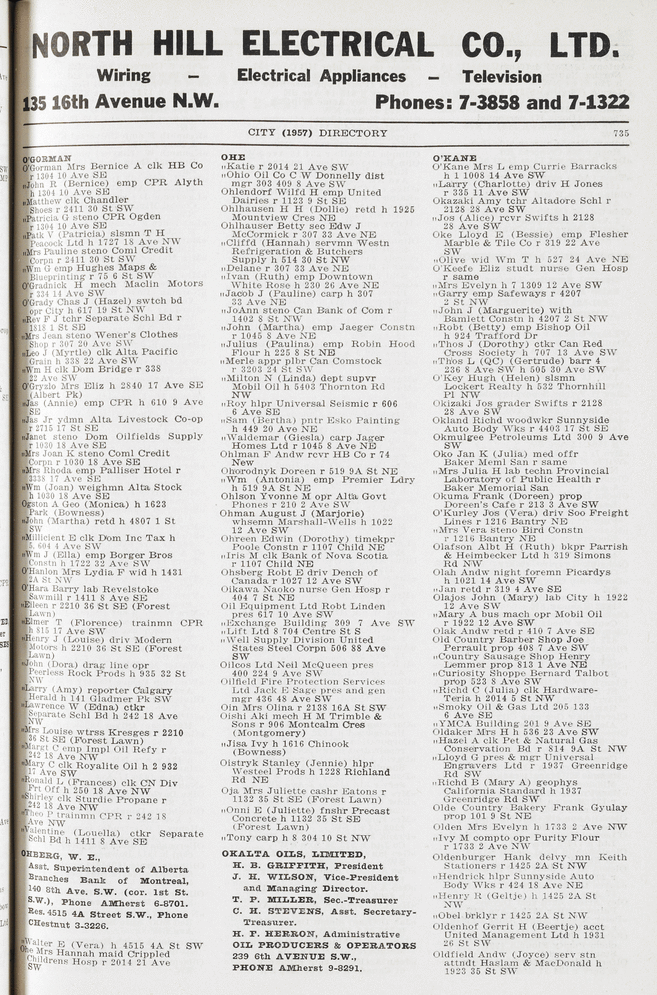 NORTH HILL ELECTRICAL CO., LTD.
Wiring — Electrical Appliances — Television
135 16th Avenue N.W. Phones: 7-3858 and 7-1322
CITY (1957) DIRECTORY 735
O'GORMAN
O'Gorman Mrs Bernice A clk HB Co
r 1304 10 Ave SE
„John R (Bernice) emp CPR Alyth
h 1304 10 Ave SE
„Matthew clk Chandler
Shoes r 2411 30 St SW
„Patricia G steno CPR Ogden
r 1304 10 Ave SE
„Patk V (Patricia) slsmn T H
Peacock Ltd h 1727 18 Ave NW
„Mrs Pauline steno Comml Credit
Corpn r 2411 30 St SW
„Wm G emp Hughes Maps &
Blueprinting r 75 6 St SW
O'Gradnick H mech Maclin Motors
r 334 14 Ave SW
O'Grady Chas J (Hazel) swtch bd
opr City h 617 19 St NW
„Rev F J tchr Separate Schl Bd r
1818 1 St SE
„Mrs Jean steno Wener's Clothes
Shop r 307 20 Ave SW
„Leo J (Myrtle) clk Alta Pacific
Grain h 338 22 Ave SW
„Wm H clk Dom Bridge r 338
22 Ave SW
O'Gryzlo Mrs Eliz h 2840 17 Ave SE
(Albert Pk)
„Jas (Annie) emp CPR h 610 9 Ave
SE
„Jas Jr ydmn Alta Livestock Co-op
r 2715 17 St SE
„Janet steno Dom Oilfields Supply
r 1030 18 Ave SE
„Mrs Joan K steno Coml Credit
Corpn r 1030 18 Ave SE
„Mrs Rhoda emp Palliser Hotel r
3338 17 Ave SE
„Wm (Joan) weighmn Alta Stock
h 1030 18 Ave SE
Ogston A Geo (Monica) h 1623
Park (Bowness)
„John (Martha) retd h 4807 1 St
SW
„Millicient E clk Dom Inc Tax h
5, 604 4 Ave SW
„Wm J (Ella) emp Borger Bros
Constn h 1722 32 Ave SW
O'Hanlon Mrs Lydia F wid h 1431
2A St NW
O'Hara Barry lab Revelstoke
Sawmill r 1411 8 Ave SE
„Eileen r 2210 36 St SE (Forest
Lawn)
„Elmer T (Florence) trainmn CPR
h 815 17 Ave SW
„Henry J (Louise) driv Modern
Motors h 2210 36 St SE (Forest
Lawn)
„John (Dora) drag line opr
Peerless Rock Prods h 935 32 St
NW
„Larry (Amy) reporter Calgary
Herald h 141 Gladmer Pk SW
„Lawrence W (Edna) ctkr
Separate Schl Bd h 242 18 Ave
NW
„Mrs Louise wtrss Kresges r 2210
36 St SE (Forest Lawn)
„Margt C emp Impl Oil Refy r
242 18 Ave NW
„Mary C clk Royalite Oil h 2 932
17 Ave SW
„Ronald L (Frances) clk CN Div
Frt Off h 250 18 Ave NW
„Shirley clk Sturdie Propane r
242 18 Ave NW
„Theo P trainmn CPR r 242 18
Ave NW
„Valentine (Louella) ctkr Separate
Schl Bd h 1411 8 Ave SE
OHBERG, W. E.,
Asst. Superintendent of Alberta
Branches Bank of Montreal,
140 8th Ave. S.W. (cor. 1st St.
S.W.), Phone AMherst 6-8701.
Res. 4515 4A Street S.W., Phone
CHestnut 3-3226.
„Walter E (Vera) h 4515 4A St SW
Ohe Mrs Hannah maid Crippled
Childrens Hosp r 2014 21 Ave
SW
OHE
„Katie r 2014 21 Ave SW
„Ohio Oil Co C W Donnelly dist
mgr 303 409 8 Ave SW
Ohlendorf Wilfd H emp United
Dairies r 1123 9 St SE
Ohlhausen H H (Dollie) retd h 1925
Mountview Cres NE
Ohlhauser Betty sec Edw J
McCormick r 307 33 Ave NE
„Cliffd (Hannah) servmn Westn
Refrigeration & Butchers
Supply h 514 30 St NW
„Delane r 307 33 Ave NE
„Ivan (Ruth) emp Downtown
White Rose h 230 26 Ave NE
„Jacob J (Pauline) carp h 307
33 Ave NE
„JoAnn steno Can Bank of Com r
1402 8 St NW
„John (Martha) emp Jaeger Constn
r 1045 8 Ave NE
„Julius (Paulina) emp Robin Hood
Flour h 225 8 St NE
„Merle appr plbr Can Comstock
r 3203 24 St SW
„Milton N (Linda) dept supvr
Mobil Oil h 5403 Thornton Rd
NW
„Roy hlpr Universal Seismic r 606
6 Ave SE
„Sam (Bertha) pntr Esko Painting
h 449 20 Ave NE
„Waldemar (Giesla) carp Jager
Homes Ltd r 1045 8 Ave NE
Ohlman F Andw rcvr HB Co r 74
New
Ohorodnyk Doreen r 519 9A St NE
„Wm (Antonia) emp Premier Ldry
h 519 9A St NE
Ohlson Yvonne M opr Alta Govt
Phones r 210 2 Ave SW
Ohman August J (Marjorie)
whsemn Marshall-Wells h 1022
12 Ave SW
Ohreen Edwin (Dorothy) timekpr
Poole Constn r 1107 Child NE
„Iris M clk Bank of Nova Scotia
r 1107 Child NE
Ohsberg Robt E driv Dench of
Canada r 1027 12 Ave SW
Oikawa Naoko nurse Gen Hosp r
404 7 St NE
Oil Equipment Ltd Robt Linden
pres 617 10 Ave SW
„Exchange Building 309 7 Ave SW
„Lift Ltd 8 704 Centre St S
„Well Supply Division United
States Steel Corpn 506 88 Ave
SW
Oilcos Ltd Neil McQueen pres
400 224 9 Ave SW
Oilfield Fire Protection Services
Ltd Jack E Sage pres and gen
mgr 436 48 Ave SW
Oin Mrs Olina r 2138 16A St SW
Oishi Aki mech H M Trimble &
Sons r 906 Montcalm Cres
(Montgomery)
„Jisa Ivy h 1616 Chinook
(Bowness)
Oistryk Stanley (Jennie) hlpr
Westeel Prods h 1228 Richland
Rd NE
Oja Mrs Juliette cashr Eatons r
1132 35 St SE (Forest Lawn)
„Onni E (Juliette) fnshr Precast
Concrete h 1132 35 St SE
(Forest Lawn)
„Tony carp h 8 304 10 St NW
OKALTA OILS, LIMITED,
H. B. GRIFFITH, President
J. H. WILSON, Vice-President
and Managing Director.
T. P. MILLER, Sec.-Treasurer
C. H. STEVENS, Asst. Secretary-
Treasurer.
H. F. HERRON, Administrative
OIL PRODUCERS & OPERATORS
239 6th AVENUE S.W.,
PHONE AMherst 9-8291.
O'KANE
O'Kane Mrs L emp Currie Barracks
h 1 1008 14 Ave SW
„Larry (Charlotte) driv H Jones
r 335 11 Ave SW
Okazaki Amy tchr Altadore Schl r
2128 28 Ave SW
„Jos (Alice) rcvr Swifts h 2128
28 Ave SW
Oke Lloyd E (Bessie) emp Flesher
Marble & Tile Co r 319 22 Ave
SW
„Olive wid Wm T h 527 24 Ave NE
O'Keefe Eliz studt nurse Gen Hosp
r same
„Mrs Evelyn h 7 1309 12 Ave SW
„Garry emp Safeways r 4207
2 St NW
„John J (Marguerite) with
Bamlett Constn h 4207 2 St NW
„Robt (Betty) emp Bishop Oil
h 924 Trafford Dr
„Thos J (Dorothy) ctkr Can Red
Cross Society h 707 13 Ave SW
„Thos L (QC) (Gertrude) barr 4
236 8 Ave SW h 505 30 Ave SW
O'Key Hugh (Helen) slsmn
Lockert Realty h 532 Thornhill
Pl NW
Okizaki Jos grader Swifts r 2128
28 Ave SW
Okland Richd woodwkr Sunnyside
Auto Body Wks r 4403 17 St SE
Okmulgee Petroleums Ltd 300 9 Ave
SW
Oko Jan K (Julia) med offr
Baker Meml San r same
„Mrs Julia H lab techn Provincial
Laboratory of Public Health r
Baker Memorial San
Okuma Frank (Doreen) prop
Doreen's Cafe r 213 3 Ave SW
O'Kurley Jos (Vera) driv Soo Freight
Lines r 1216 Bantry NE
„Mrs Vera steno Bird Constn
r 1216 Bantry NE
Olafson Albt H (Ruth) bkpr Parrish
& Heimbecker Ltd h 319 Simons
Rd NW
Olah Andw night foremn Picardys
h 1021 14 Ave SW
„Jan retd r 319 4 Ave SE
Olajos John (Mary) lab City h 1922
12 Ave SW
„Mary A bus mach opr Mobil Oil
r 1922 12 Ave SW
Olak Andw retd r 410 7 Ave SE
Old Country Barber Shop Joe
Perrault prop 408 7 Ave SW
„Country Sausage Shop Henry
Lemmer prop 813 1 Ave NE
„Curiosity Shoppe Bernard Talbot
prop 523 8 Ave SW
„Richd C (Julia) clk Hardware-
Teria h 2014 5 St NW
„Smoky Oil & Gas Ltd 205 133
6 Ave SE
„YMCA Building 201 9 Ave SE
Oldaker Mrs H h 536 23 Ave SW
„Hazel A clk Pet & Natural Gas
Conservation Bd r 814 9A St NW
„Lloyd G pres & mgr Universal
Engravers Ltd r 1937 Greenridge
Rd SW
„Richd B (Mary A) geophys
California Standard h 1937
Greenridge Rd SW
Olde Country Bakery Frank Gyulay
prop 101 9 St NE
Olden Mrs Evelyn h 1733 2 Ave NW
„Ivy M compto opr Purity Flour
r 1733 2 Ave NW
Oldenburger Hank delvy mn Keith
Stationers r 1425 2A St NW
„Hendrick hlpr Sunnyside Auto
Body Wks r 424 18 Ave NE
„Henry R (Geltje) h 1425 2A St
NW
„Obel brklyr r 1425 2A St NW
Oldenhof Gerrit H (Beertje) acct
United Management Ltd h 1931
26 St SW
Oldfield Andw (Joyce) serv stn
attndt Haslam & MacDonald h
1923 35 St SW